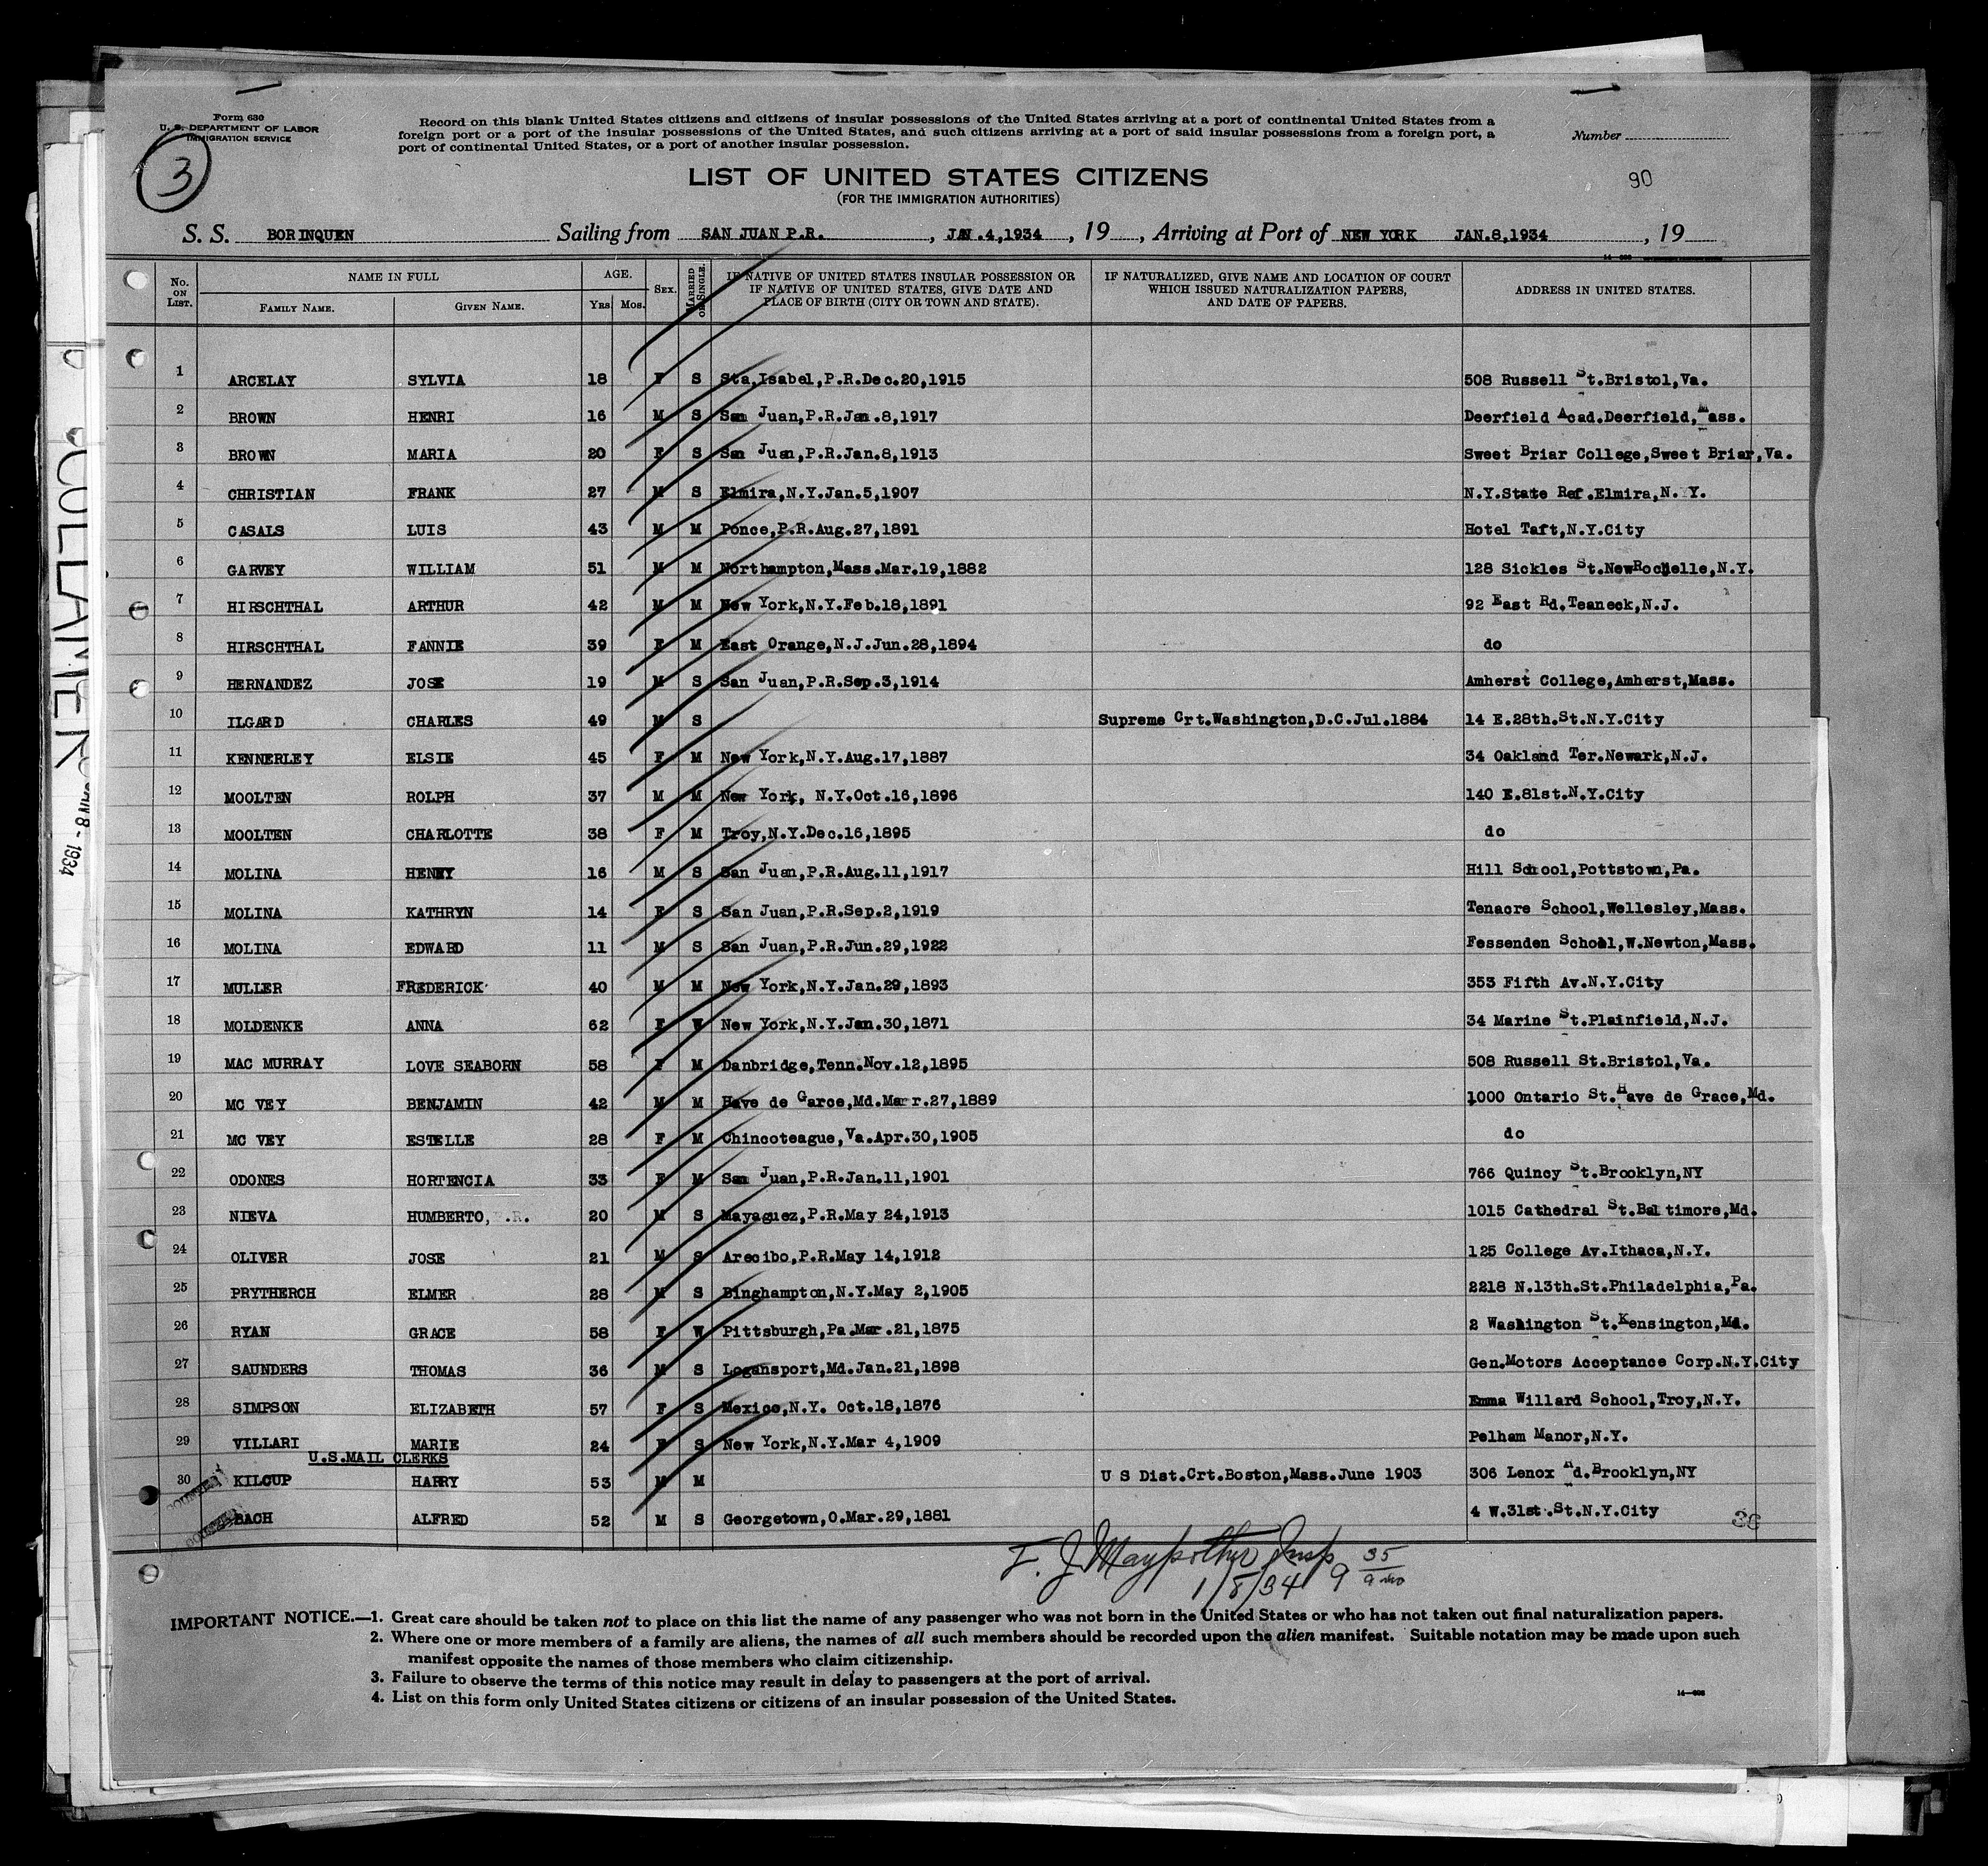 Form 630
U. S. DEPARTMENT OF LABOR
IMMIGRATION SERVICE
3
Record on this blank United States citizens and citizens of insular possessions of the United States arriving at a port of continental United States from a
foreign port or a port of the insular possessions of the United States, and such citizens arriving at a port of said insular possessions from a foreign port, a
port of continental United States, or a port of another insular possession.
Number
90
LIST OF UNITED STATES CITIZENS
(FOR THE IMMIGRATION AUTHORITIES)
S. S. BORINQUEN Sailing from SAN JUAN P.R. , JAN.4,1934 , 19 , Arriving at Port of NEW YORK JAN.8,1934 , 19
No. ON LIST. NAME IN FULL FAMILY NAME. GIVEN NAME. AGE. YRS MOS. SEX. MARRIED OR SINGLE. IF NATIVE OF UNITED STATES INSULAR POSSESSION OR IF NATIVE OF UNITED STATES, GIVE DATE AND PLACE OF BIRTH (CITY OR TOWN AND STATE). IF NATURALIZED, GIVE NAME AND LOCATION OF COURT WHICH ISSUED NATURALIZATION PAPERS, AND DATE OF PAPERS. ADDRESS IN UNITED STATES.
1 ARCELAY SYLVIA 18 F S Sta.Isabel,P.R.Dec.20,1915 508 Russell St.Bristol,Va.
2 BROWN HENRI 16 M S San Juan,P.R.Jan.8,1917 Deerfield Acad.Deerfield,Mass.
3 BROWN MARIA 20 F S San Juan,P.R.Jan.8,1913 Sweet Briar College,Sweet Briar,Va.
4 CHRISTIAN FRANK 27 M S Elmira,N.Y.Jan.5,1907 N.Y.State Ref.Elmira,N.Y.
5 CASALS LUIS 43 M M Ponce,P.R.Aug.27,1891 Hotel Taft,N.Y.City
6 GARVEY WILLIAM 51 M M Northampton,Mass.Mar.19,1882 128 Sickles St.NewRochelle,N.Y.
7 HIRSCHTHAL ARTHUR 42 M M New York,N.Y.Feb.18,1891 92 East Rd.Teaneck,N.J.
8 HIRSCHTHAL FANNIE 39 F M East Orange,N.J.Jun.28,1894 do
9 HERNANDEZ JOSE 19 M S San Juan,P.R.Sep.3,1914 Amherst College,Amherst,Mass.
10 ILGARD CHARLES 49 M S Supreme Crt.Washington,D.C.Jul.1884 14 E.28th.St.N.Y.City
11 KENNERLEY ELSIE 45 F M New York,N.Y.Aug.17,1887 34 Oakland Ter.Newark,N.J.
12 MOOLTEN ROLPH 37 M M New York, N.Y.Oct.16,1896 140 E.81st.N.Y.City
13 MOOLTEN CHARLOTTE 38 F M Troy,N.Y.Dec.16,1895 do
14 MOLINA HENRY 16 M S San Juan,P.R.Aug.11,1917 Hill School,Pottstown,Pa.
15 MOLINA KATHRYN 14 F S San Juan,P.R.Sep.2,1919 Tenacre School,Wellesley,Mass.
16 MOLINA EDWARD 11 M S San Juan,P.R.Jun.29,1922 Fessenden School,W.Newton,Mass.
17 MULLER FREDERICK 40 M M New York,N.Y.Jan.29,1893 353 Fifth Av.N.Y.City
18 MOLDENKE ANNA 62 F W New York,N.Y.Jan.30,1871 34 Marine St.Plainfield,N.J.
19 MAC MURRAY LOVE SEABORN 58 F M Danbridge,Tenn.Nov.12,1895 508 Russell St.Bristol,Va.
20 MC VEY BENJAMIN 42 M M Have de Garce,Md.Mar.27,1889 1000 Ontario St.Have de Grace,Md.
21 MC VEY ESTELLE 28 F M Chincoteague,Va.Apr.30,1905 do
22 ODONES HORTENCIA 33 F M San Juan,P.R.Jan.11,1901 766 Quincy St.Brooklyn,NY
23 NIEVA HUMBERTO, P.R. 20 M S Mayaguez,P.R.May 24,1913 1015 Cathedral St.Baltimore,Md.
24 OLIVER JOSE 21 M S Arecibo,P.R.May 14,1912 125 College Av.Ithaca,N.Y.
25 PRYTHERCH ELMER 28 M S Binghampton,N.Y.May 2,1905 2218 N.13th.St.Philadelphia,Pa.
26 RYAN GRACE 58 F W Pittsburgh,Pa.Mar.21,1875 2 Washington St.Kensington,Md.
27 SAUNDERS THOMAS 36 M S Logansport,Md.Jan.21,1898 Gen.Motors Acceptance Corp.N.Y.City
28 SIMPSON ELIZABETH 57 F S Mexico,N.Y. Oct.18,1876 Emma Willard School,Troy,N.Y.
29 VILLARI MARIE 24 F S New York,N.Y.Mar 4,1909 Pelham Manor,N.Y.
U.S.MAIL CLERKS
30 KILCUP HARRY 53 M M U S Dist.Crt.Boston,Mass.June 1903 306 Lenox Rd.Brooklyn,NY
BACH ALFRED 52 M S Georgetown,O.Mar.29,1881 4 W.31st.St.N.Y.City
36
F. J. Maypother Insp 9 35
1/8/34
IMPORTANT NOTICE.—1. Great care should be taken not to place on this list the name of any passenger who was not born in the United States or who has not taken out final naturalization papers.
2. Where one or more members of a family are aliens, the names of all such members should be recorded upon the alien manifest. Suitable notation may be made upon such
manifest opposite the names of those members who claim citizenship.
3. Failure to observe the terms of this notice may result in delay to passengers at the port of arrival.
4. List on this form only United States citizens or citizens of an insular possession of the United States.
JAN 8 - 1934